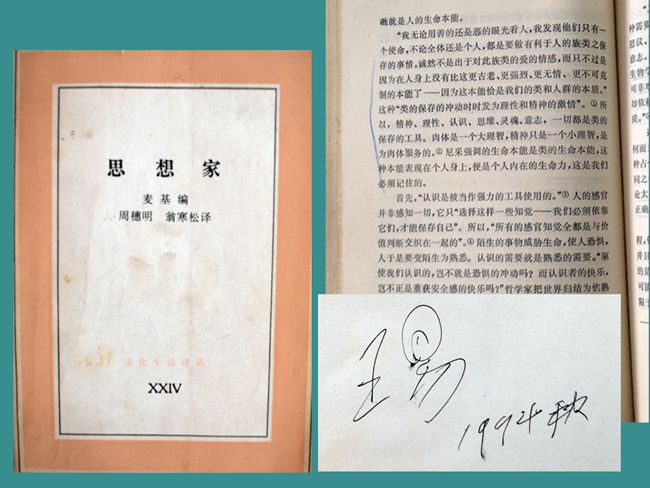 思想家
麦基编
周穗明 翁寒松译
文化生活译丛
XXIV
础就是人的生命本能。
“我无论用善的还是恶的眼光看人，我发现他们只有一
个使命，不论全体还是个人，都是要做有利于人的族类之保
存的事情。诚然不是出于对此族类的爱的情感，而只不过是
因为在人身上没有比这更古老、更强烈、更无情、更不可克
制的本能了——因为这本能恰是我们的类和人群的本质。”
这种“类的保存的冲动时时发为理性和精神的激情”。①所
以，精神、理性、认识、思维、灵魂、意志，一切都是类的
保存的工具。肉体是一个大理智，精神只是一个小理智，是
为肉体服务的。②尼采强调的生命本能是类的生命本能，这
种本能表现在个人身上，便是个人内在的生命力，这是我们
必须记住的。
首先，“认识是被当作强力的工具使用的。”③人的感官
并非感知一切，它只“选择这样一些知觉——我们必须依靠
它们，才能保存自己”。所以，“所有的感官知觉全都是与价
值判断交织在一起的”。④陌生的事物威胁生命，使人恐惧，
人于是要变陌生为熟悉。认识的需要就是熟悉的需要。“驱
使我们认识的，岂不就是恐惧的冲动吗？而认识者的快乐，
岂不正是重获安全感的快乐吗？”哲学家把世界归结为他熟
王
1994秋
种需要
思议、
意志。
生物学
可非难
却依
质。”
何而
占
同之
论太
正确
程，
并且
的是
可能
限于